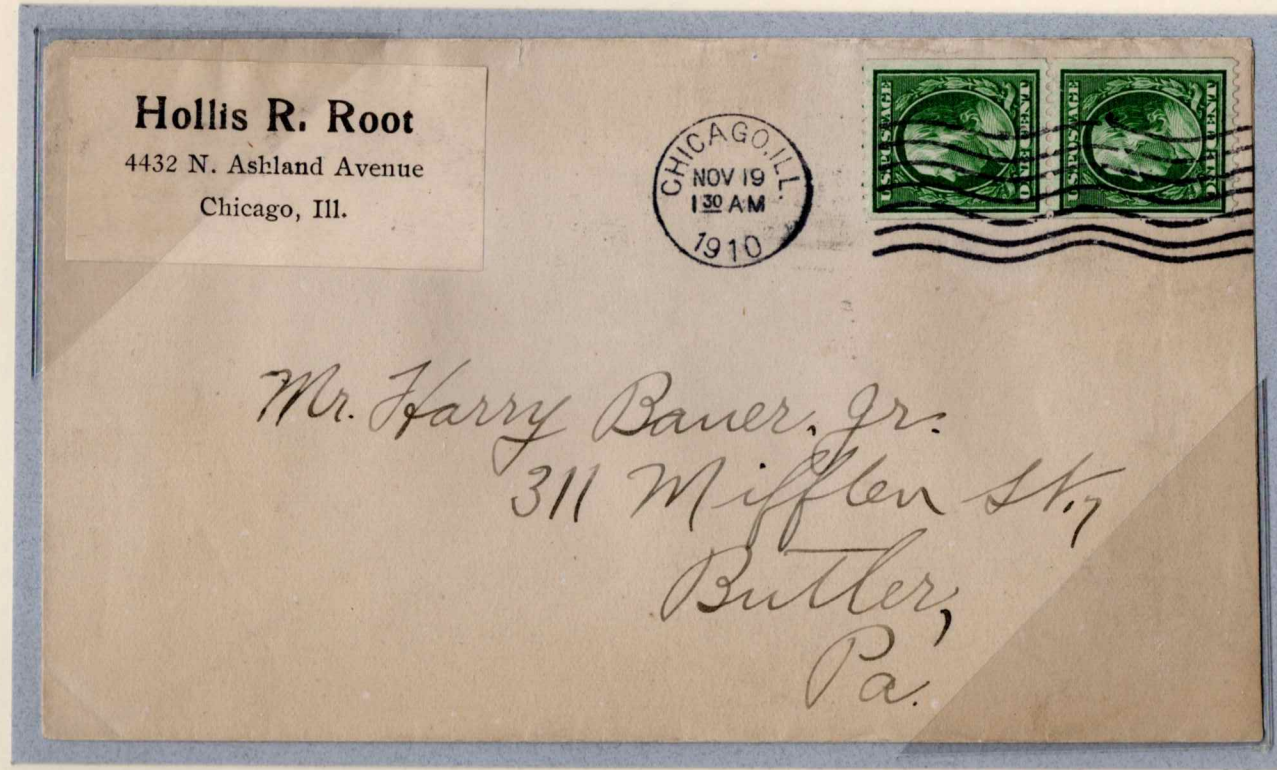 Hollis R. Root
4432 N. Ashland Avenue
Chicago, Ill.
CHICAGO, ILL.
NOV 19
1 30 AM
1910
U.S. POSTAGE
ONE CENT ONE
U.S. POSTAGE
ONE CENT ONE
Mr. Harry Bauer, Jr.
311 Mifflen St.,
Butler,
Pa.